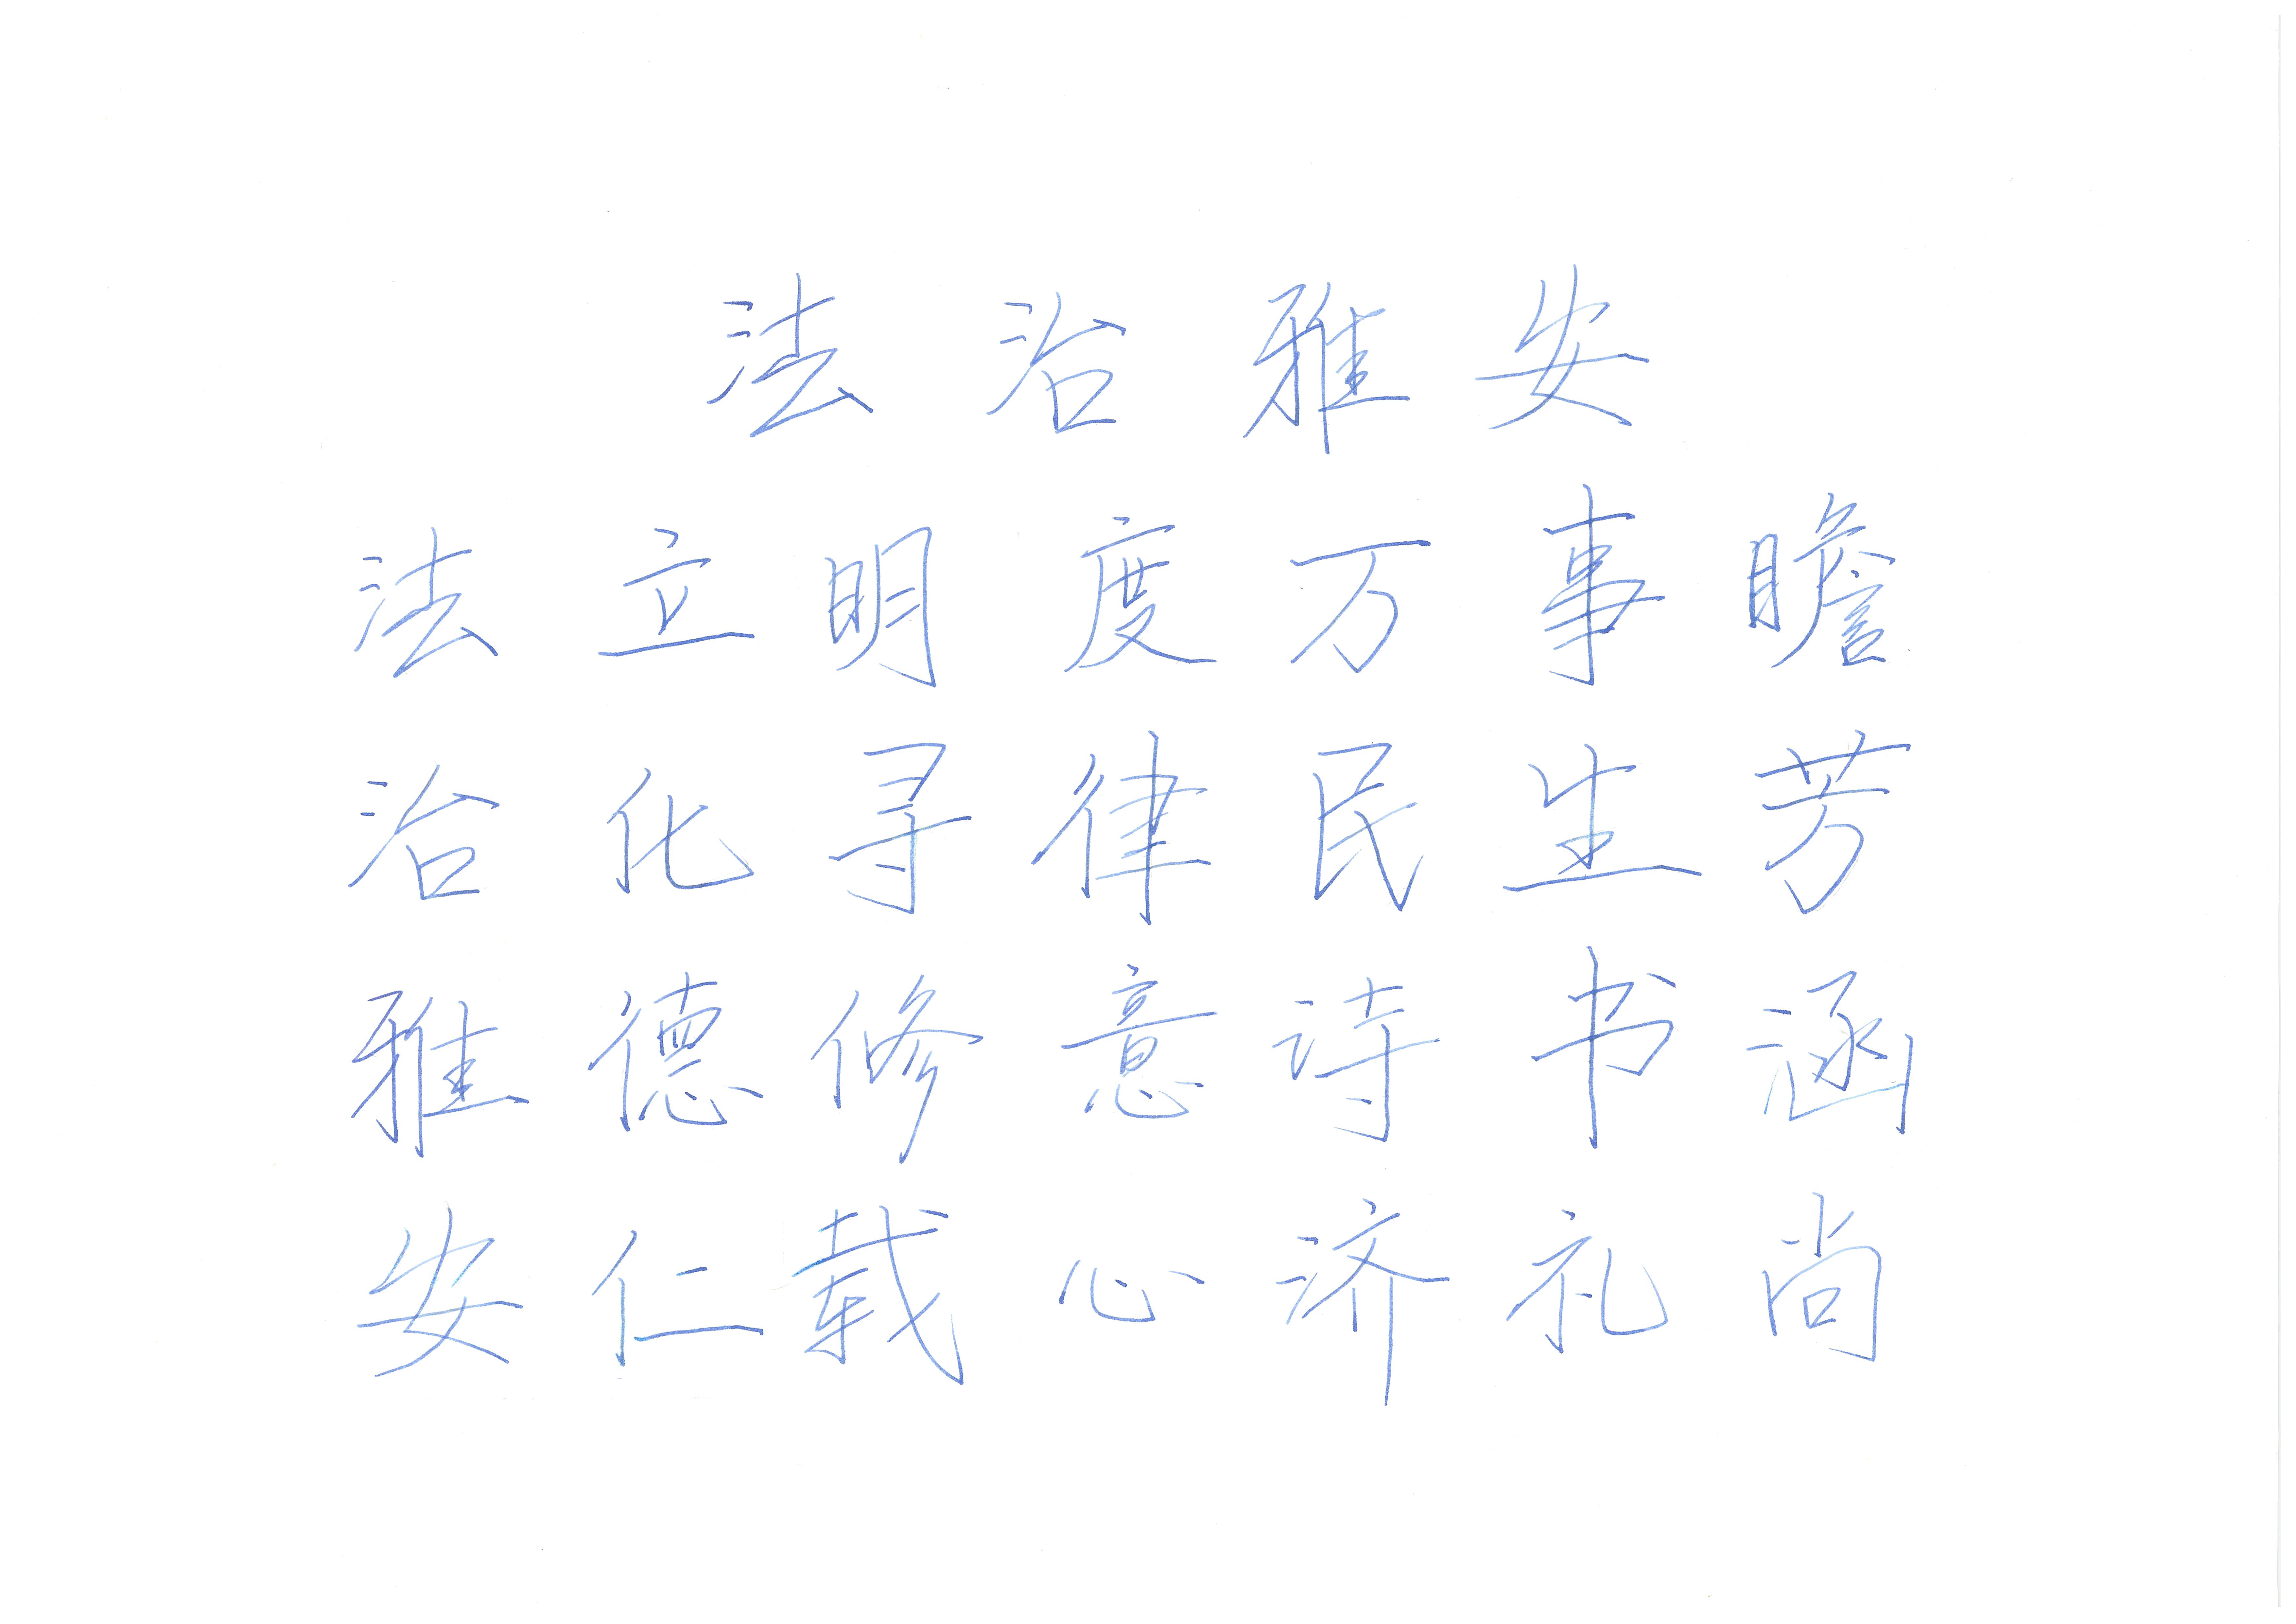 法治雅安
法立明度万事瞻
治化寻律民生芳
雅德修意诗书涵
安仁载心济礼尚